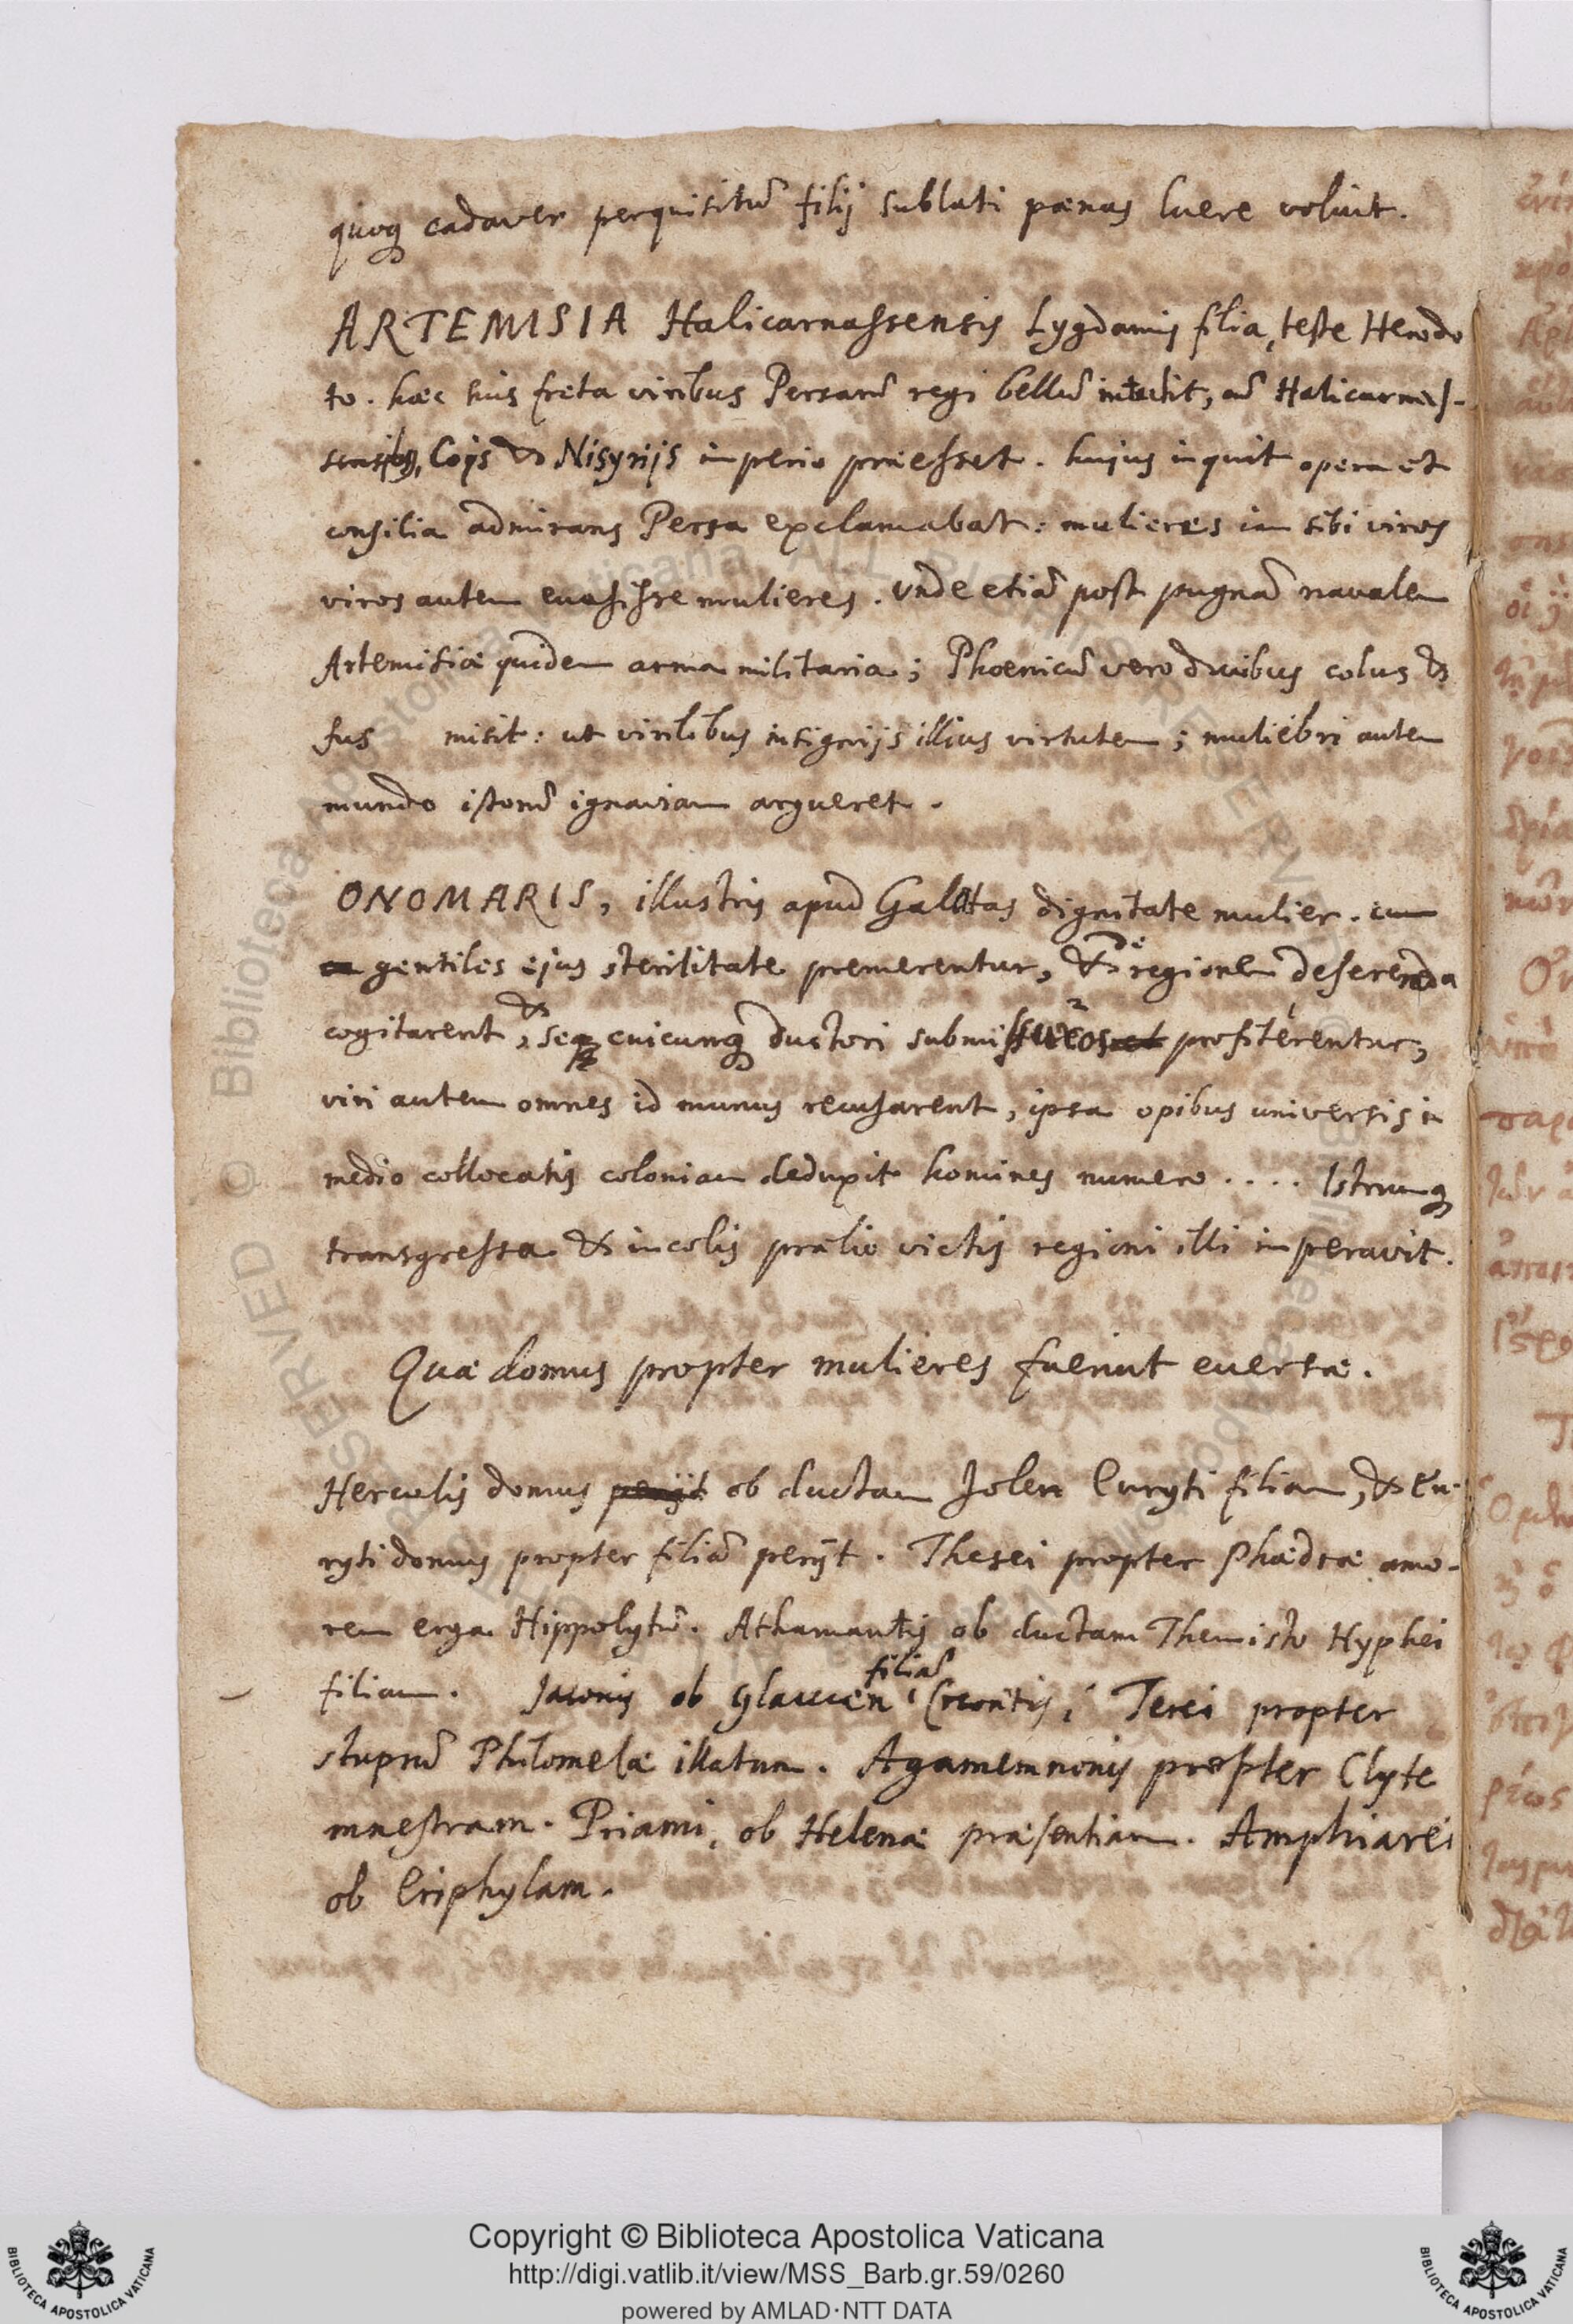 quoq cadaver perquisitū filij sublati pœnas luere voluit.
ARTEMISIA Halicarnassensis Lygdamis filia, teste Herodo
to. hæc his freta viribus Persarū regi bellū intulit, cū Halicarnas-
sensibus, Cojs & Nisyrijs imperio præesset. hujus inquit opera et
consilia admirans Persa exclamabat: mulieres iam sibi viros
viros autem euasisse mulieres. Vnde etiā post pugnā navalem
Artemisiæ quidem arma militaria; Phoenicū vero ducibus colus &
fus misit: ut virilibus insignijs illius virtutem; muliebri autem
mundo istorū ignaviam argueret.
ONOMARIS, illustris apud Galatas dignitate mulier. cum
gentiles ejus sterilitate premerentur, & de regione deserenda
cogitarent, & seq cuicunq ductori submissuros profiterentur,
viri autem omnes id munus recusarent, ipsa opibus universis in
medio collocatis coloniam deduxit homines numero .... Istrumq
transgressa & incolis prælio victis regioni illi imperavit.
Quæ domus propter mulieres fuerint euersæ.
Herculis domus perijt ob ductam Jolen Euryti filiam, & Eu-
ryti domus propter filiā perijt. Thesei propter Phædræ amo-
rem erga Hippolytū. Athamantis ob ductam Themisto Hyphei
filiam. Jasonis ob Glaucen filiā Creontis; Terei propter
stuprū Philomelæ illatum. Agamemnonis propter Clyte
mnestram. Priami, ob Helenæ præsentiam. Amphiarei
ob Eriphylam.
Copyright © Biblioteca Apostolica Vaticana
http://digi.vatlib.it/view/MSS_Barb.gr.59/0260
powered by AMLAD·NTT DATA
BIBLIOTECA APOSTOLICA VATICANA
BIBLIOTECA APOSTOLICA VATICANA